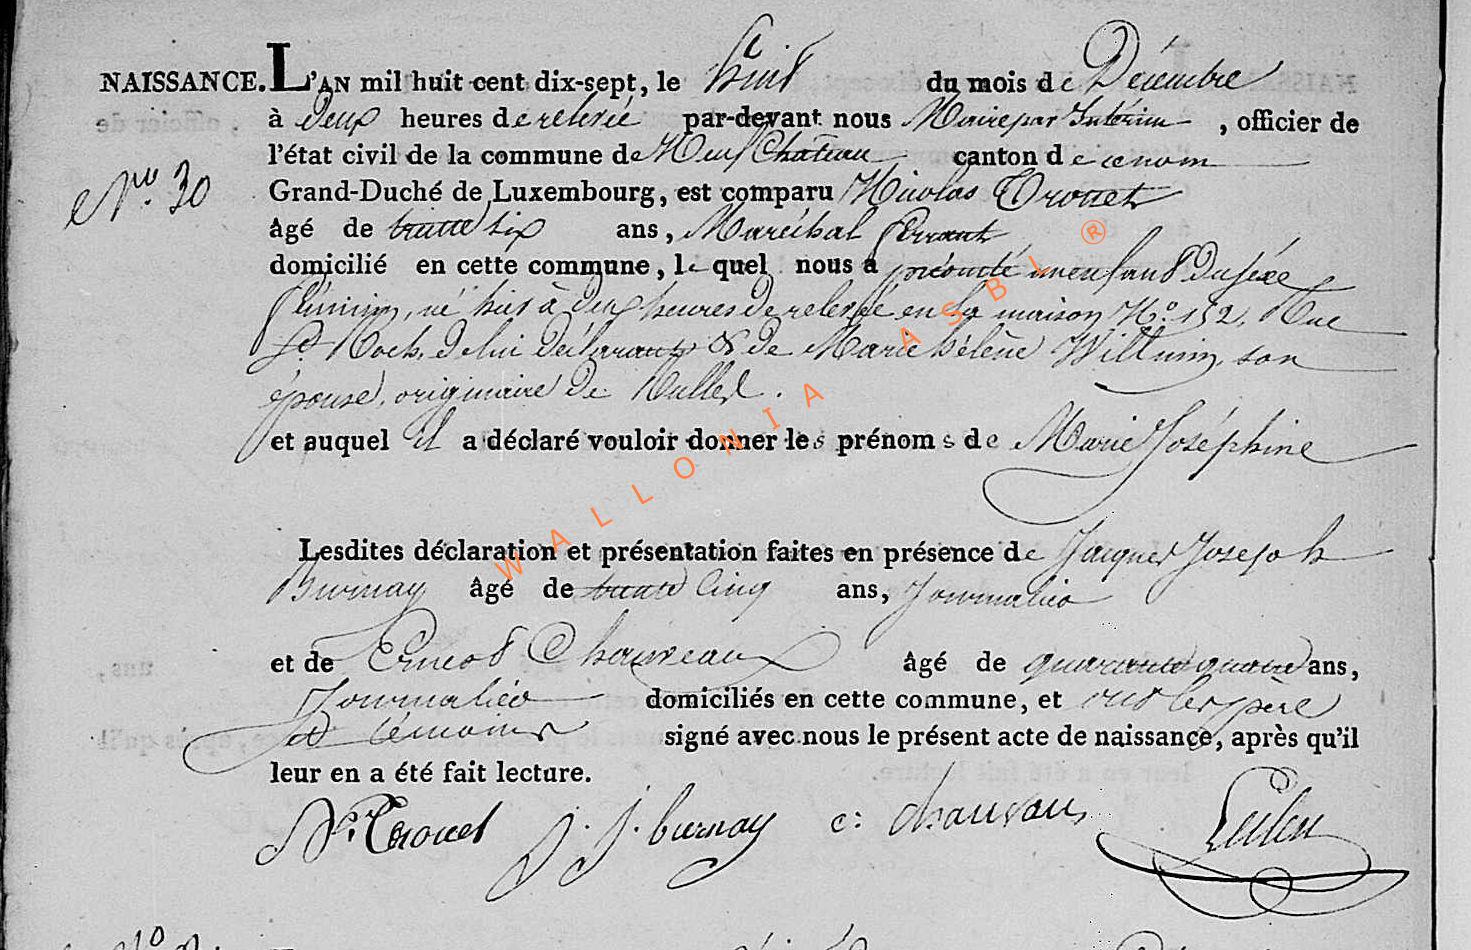 NAISSANCE. L'AN mil huit cent dix-sept, le huit du mois de Décembre
à deux heures de relevée par-devant nous Maire par Intérim, officier de
l'état civil de la commune de Neufchateau canton de ce nom
Nro. 30
Grand-Duché de Luxembourg, est comparu Nicolas Trouet
âgé de trente six ans, Maréchal ferrant
domicilié en cette commune, le quel nous a présenté un enfant du séxe
féminin, né hier à deux heures de relevée en la maison No. 152, Rue
St Roch, de lui déclarant & de Marie hélène Wiltmin, son
épouse, originaire de
et auquel il a déclaré vouloir donner les prénoms de Marie Joséphine
Lesdites déclaration et présentation faites en présence de Jacques Joseph
Burnay âgé de trente cinq ans, Journalier
et de Ernest Chauveaux âgé de quarante quatre ans,
Journalier domiciliés en cette commune, et ont les père
et témoins signé avec nous le présent acte de naissance, après qu'il
leur en a été fait lecture.
N: Trouet J. J. burnay e: chauvaux
WALLONIA ASBL ®